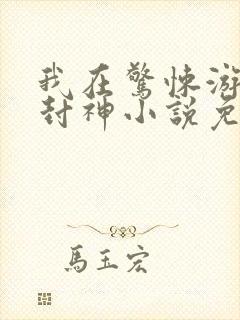 我在驚悚游
封神小說免
馬玉宏